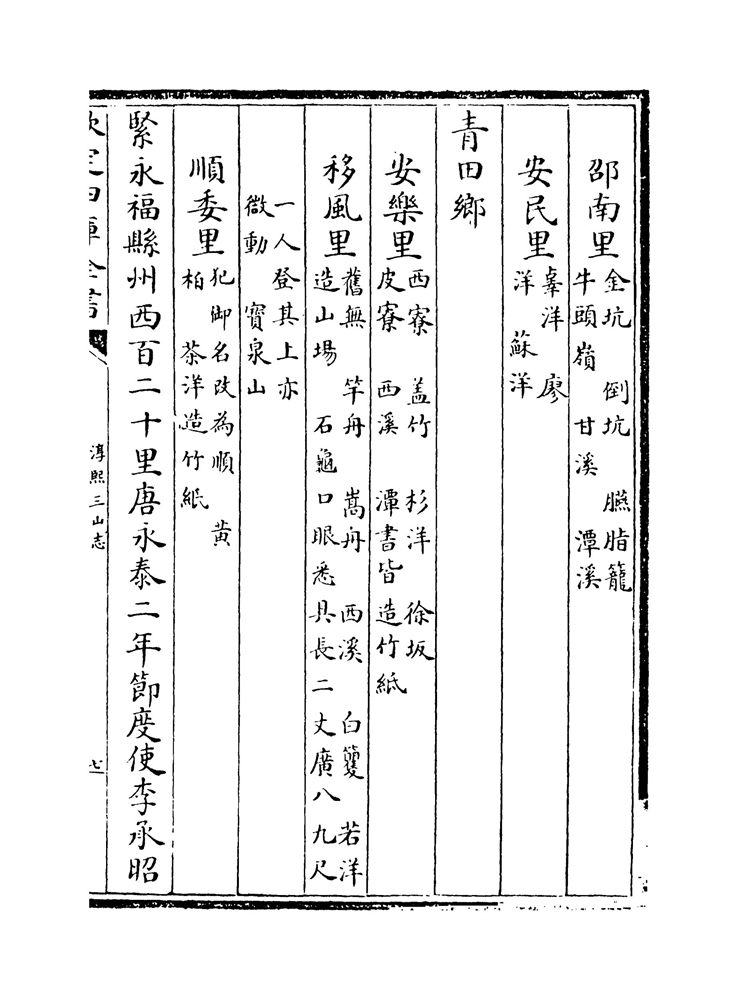 邵南里金坑　倒坑　臙脂籠
牛頭嶺　甘溪　潭溪
安民里辜洋　廖
洋　蘇洋
青田鄉
安樂里西寮　蓋竹　杉洋　徐坂
皮寮　西溪　潭書皆造竹紙
移風里舊無　竿舟　嵩舟　西溪　白䉶　若洋
造山場　石龜口眼悉具長二丈廣八九尺
一人登其上亦
微動　寳泉山
順委里犯御名改為順　黄
柏　茶洋造竹紙
緊永福縣州西百二十里唐永泰二年節度使李承昭
欽定四庫全書
淳熙三山志
七